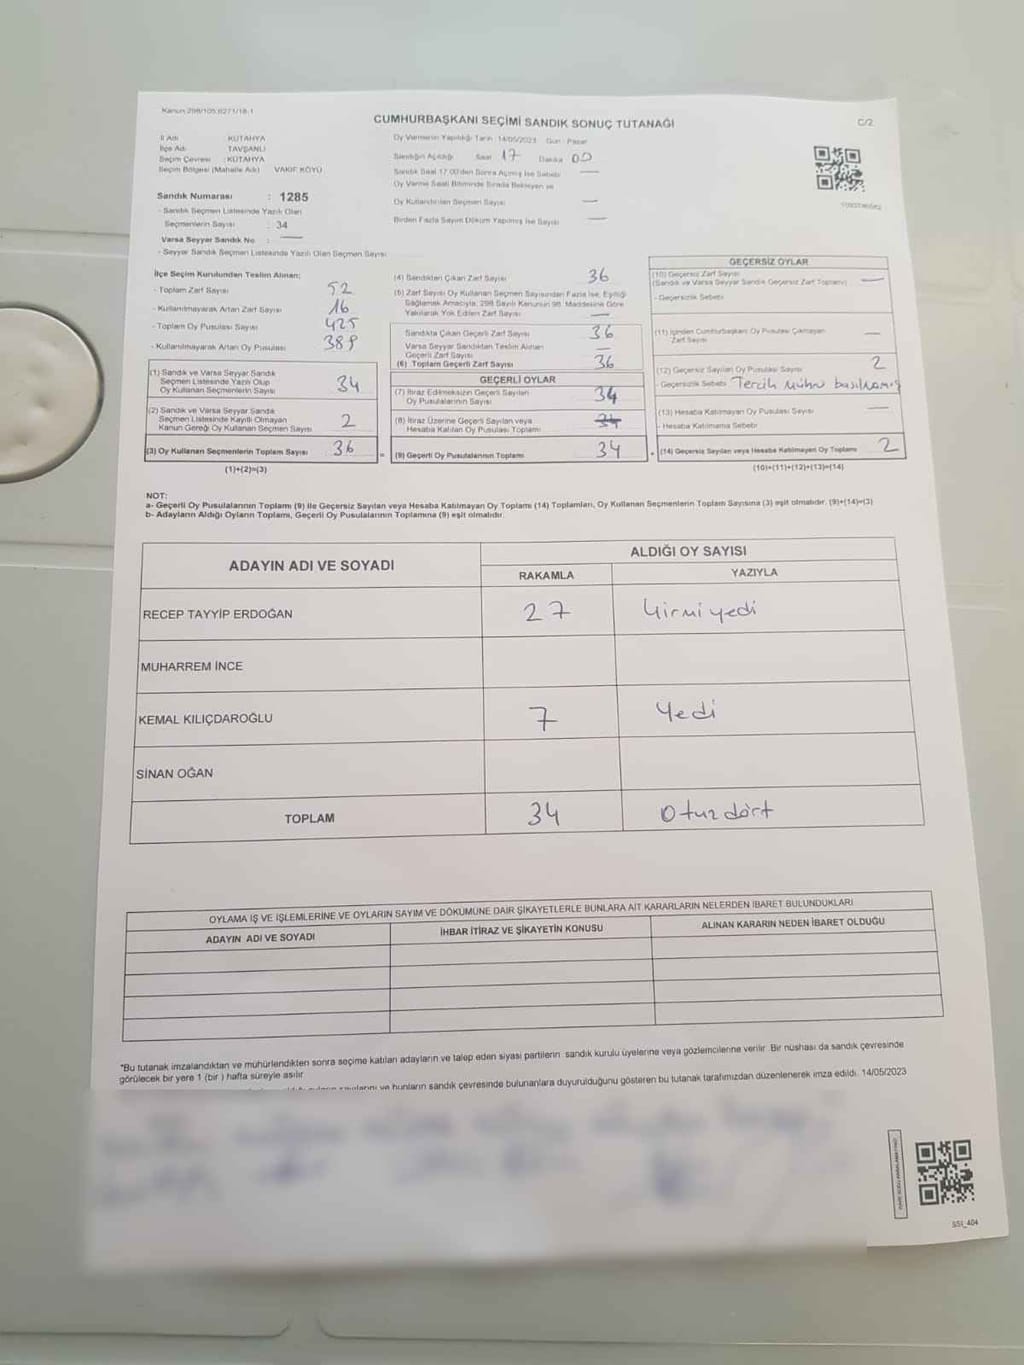 Kanun 298/105,6271/18-1
CUMHURBAŞKANI SEÇİMİ SANDIK SONUÇ TUTANAĞI
C/2
İl Adı : KÜTAHYA
İlçe Adı : TAVŞANLI
Seçim Çevresi : KÜTAHYA
Seçim Bölgesi (Mahalle Adı) : VAKIF KÖYÜ
Sandık Numarası : 1285
- Sandık Seçmen Listesinde Yazılı Olan
Seçmenlerin Sayısı : 34
Varsa Seyyar Sandık No : —
- Seyyar Sandık Seçmen Listesinde Yazılı Olan Seçmen Sayısı
Oy Vermenin Yapıldığı Tarih : 14/05/2023 Gün : Pazar
Sandığın Açıldığı Saat 17 Dakika 00
Sandık Saat 17.00'den Sonra Açılmış İse Sebebi —
Oy Verme Saati Bitiminde Sırada Bekleyen ve
Oy Kullandırılan Seçmen Sayısı —
Birden Fazla Sayım Döküm Yapılmış İse Sayısı —
İlçe Seçim Kurulundan Teslim Alınan;
- Toplam Zarf Sayısı 52
- Kullanılmayarak Artan Zarf Sayısı 16
- Toplam Oy Pusulası Sayısı 425
- Kullanılmayarak Artan Oy Pusulası 389
(1) Sandık ve Varsa Seyyar Sandık
Seçmen Listesinde Yazılı Olup
Oy Kullanan Seçmenlerin Sayısı 34
(2) Sandık ve Varsa Seyyar Sandık
Seçmen Listesinde Kayıtlı Olmayan
Kanun Gereği Oy Kullanan Seçmen Sayısı 2
(3) Oy Kullanan Seçmenlerin Toplam Sayısı 36
(1)+(2)=(3)
(4) Sandıktan Çıkan Zarf Sayısı 36
(5) Zarf Sayısı Oy Kullanan Seçmen Sayısından Fazla İse, Eşitliği
Sağlamak Amacıyla, 298 Sayılı Kanunun 98. Maddesine Göre
Yakılarak Yok Edilen Zarf Sayısı —
Sandıkta Çıkan Geçerli Zarf Sayısı 36
Varsa Seyyar Sandıktan Teslim Alınan
Geçerli Zarf Sayısı —
(6) Toplam Geçerli Zarf Sayısı 36
GEÇERLİ OYLAR
(7) İtiraz Edilmeksizin Geçerli Sayılan
Oy Pusulalarının Sayısı 34
(8) İtiraz Üzerine Geçerli Sayılan veya
Hesaba Katılan Oy Pusulası Toplamı 34
= (9) Geçerli Oy Pusulalarının Toplamı 34
GEÇERSİZ OYLAR
(10) Geçersiz Zarf Sayısı
(Sandık ve Varsa Seyyar Sandık Geçersiz Zarf Toplamı) —
- Geçersizlik Sebebi
(11) İçinden Cumhurbaşkanı Oy Pusulası Çıkmayan
Zarf Sayısı —
(12) Geçersiz Sayılan Oy Pusulası Sayısı 2
- Geçersizlik Sebebi Tercih mührü basılmamış
(13) Hesaba Katılmayan Oy Pusulası Sayısı —
- Hesaba Katılmama Sebebi
+ (14) Geçersiz Sayılan veya Hesaba Katılmayan Oy Toplamı 2
(10)+(11)+(12)+(13)=(14)
NOT:
a- Geçerli Oy Pusulalarının Toplamı (9) ile Geçersiz Sayılan veya Hesaba Katılmayan Oy Toplamı (14) Toplamları, Oy Kullanan Seçmenlerin Toplam Sayısına (3) eşit olmalıdır. (9)+(14)=(3)
b- Adayların Aldığı Oyların Toplamı, Geçerli Oy Pusulalarının Toplamına (9) eşit olmalıdır.
ADAYIN ADI VE SOYADI
ALDIĞI OY SAYISI
RAKAMLA YAZIYLA
RECEP TAYYİP ERDOĞAN 27 Yirmiyedi
MUHARREM İNCE
KEMAL KILIÇDAROĞLU 7 Yedi
SİNAN OĞAN
TOPLAM 34 Otuzdört
OYLAMA İŞ VE İŞLEMLERİNE VE OYLARIN SAYIM VE DÖKÜMÜNE DAİR ŞİKAYETLERLE BUNLARA AİT KARARLARIN NELERDEN İBARET BULUNDUKLARI
ADAYIN ADI VE SOYADI İHBAR İTİRAZ VE ŞİKAYETİN KONUSU ALINAN KARARIN NEDEN İBARET OLDUĞU
*Bu tutanak imzalandıktan ve mühürlendikten sonra seçime katılan adayların ve talep eden siyasi partilerin sandık kurulu üyelerine veya gözlemcilerine verilir. Bir nüshası da sandık çevresinde
görülecek bir yere 1 (bir ) hafta süreyle asılır.
ve bunların sandık çevresinde bulunanlara duyurulduğunu gösteren bu tutanak tarafımızdan düzenlenerek imza edildi. 14/05/2023
SSI_404